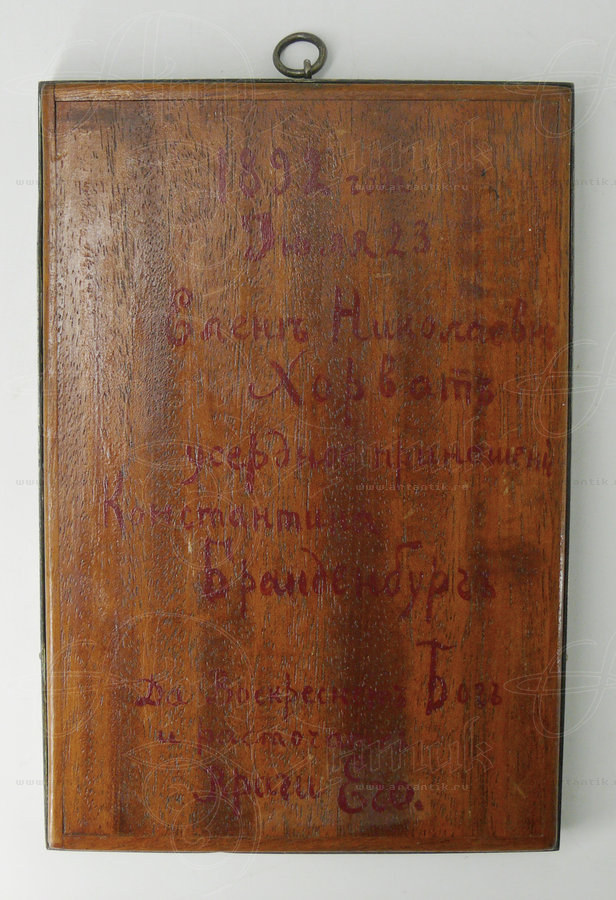 1892 года
Июля 23
Еленѣ Николаевнѣ
Хорватъ
усердное приношеніе
Константина
Бранденбургъ
Да Воскреснетъ Богъ
и расточатся
Врази Его.
www.artantik.ru